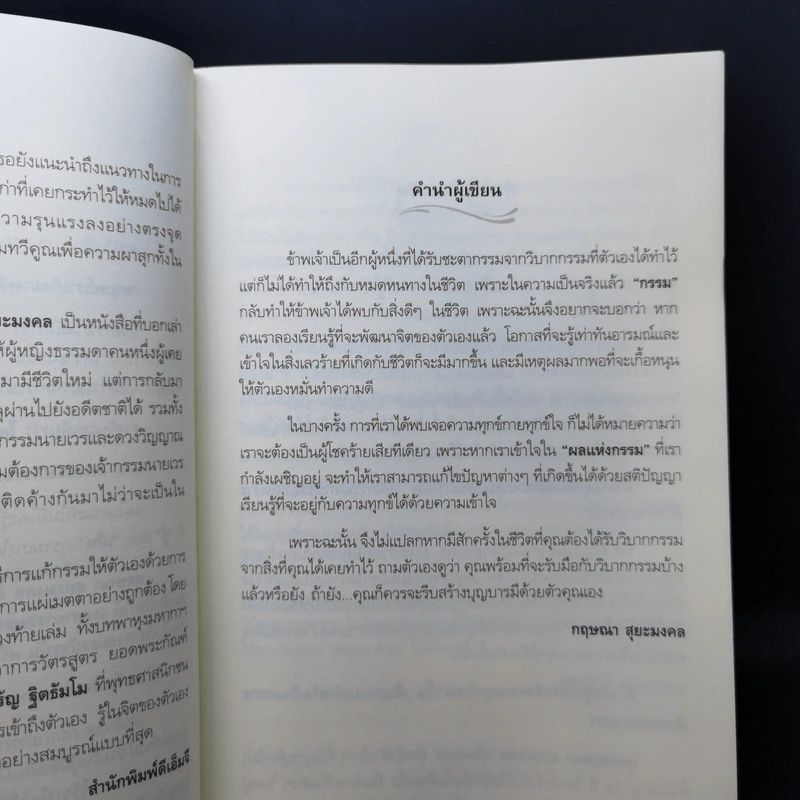 ธอยังแนะนำถึงแนวทางในการ
ก่าที่เคยกระทำไว้ให้หมดไปได้
วามรุนแรงลงอย่างตรงจุด
มทวีคูณเพื่อความผาสุกทั้งใน
ยะมงคล เป็นหนังสือที่บอกเล่า
ห้ผู้หญิงธรรมดาคนหนึ่งผู้เคย
มามีชีวิตใหม่ แต่การกลับมา
ลุผ่านไปยังอดีตชาติได้ รวมทั้ง
ากรรมนายเวรและดวงวิญญาณ
มต้องการของเจ้ากรรมนายเวร
ติดค้างกันมาไม่ว่าจะเป็นใน
ธีการแก้กรรมให้ตัวเองด้วยการ
การแผ่เมตตาอย่างถูกต้อง โดย
วงท้ายเล่ม ทั้งบทพาหุงมหากาฯ
าการวัตรสูตร ยอดพระกัณฑ์
รัญ ฐิตธัมโม ที่พุทธศาสนิกชน
รเข้าถึงตัวเอง รู้ในจิตของตัวเอง
อย่างสมบูรณ์แบบที่สุด
สำนักพิมพ์ดีเอ็มจี
คำนำผู้เขียน
ข้าพเจ้าเป็นอีกผู้หนึ่งที่ได้รับชะตากรรมจากวิบากกรรมที่ตัวเองได้ทำไว้
แต่ก็ไม่ได้ทำให้ถึงกับหมดหนทางในชีวิต เพราะในความเป็นจริงแล้ว “กรรม”
กลับทำให้ข้าพเจ้าได้พบกับสิ่งดีๆ ในชีวิต เพราะฉะนั้นจึงอยากจะบอกว่า หาก
คนเราลองเรียนรู้ที่จะพัฒนาจิตของตัวเองแล้ว โอกาสที่จะรู้เท่าทันอารมณ์และ
เข้าใจในสิ่งเลวร้ายที่เกิดกับชีวิตก็จะมีมากขึ้น และมีเหตุผลมากพอที่จะเกื้อหนุน
ให้ตัวเองหมั่นทำความดี
ในบางครั้ง การที่เราได้พบเจอความทุกข์กายทุกข์ใจ ก็ไม่ได้หมายความว่า
เราจะต้องเป็นผู้โชคร้ายเสียทีเดียว เพราะหากเราเข้าใจใน “ผลแห่งกรรม” ที่เรา
กำลังเผชิญอยู่ จะทำให้เราสามารถแก้ไขปัญหาต่างๆ ที่เกิดขึ้นได้ด้วยสติปัญญา
เรียนรู้ที่จะอยู่กับความทุกข์ได้ด้วยความเข้าใจ
เพราะฉะนั้น จึงไม่แปลกหากมีสักครั้งในชีวิตที่คุณต้องได้รับวิบากกรรม
จากสิ่งที่คุณได้เคยทำไว้ ถามตัวเองดูว่า คุณพร้อมที่จะรับมือกับวิบากกรรมบ้าง
แล้วหรือยัง ถ้ายัง...คุณก็ควรจะรีบสร้างบุญบารมีด้วยตัวคุณเอง
กฤษณา สุยะมงคล